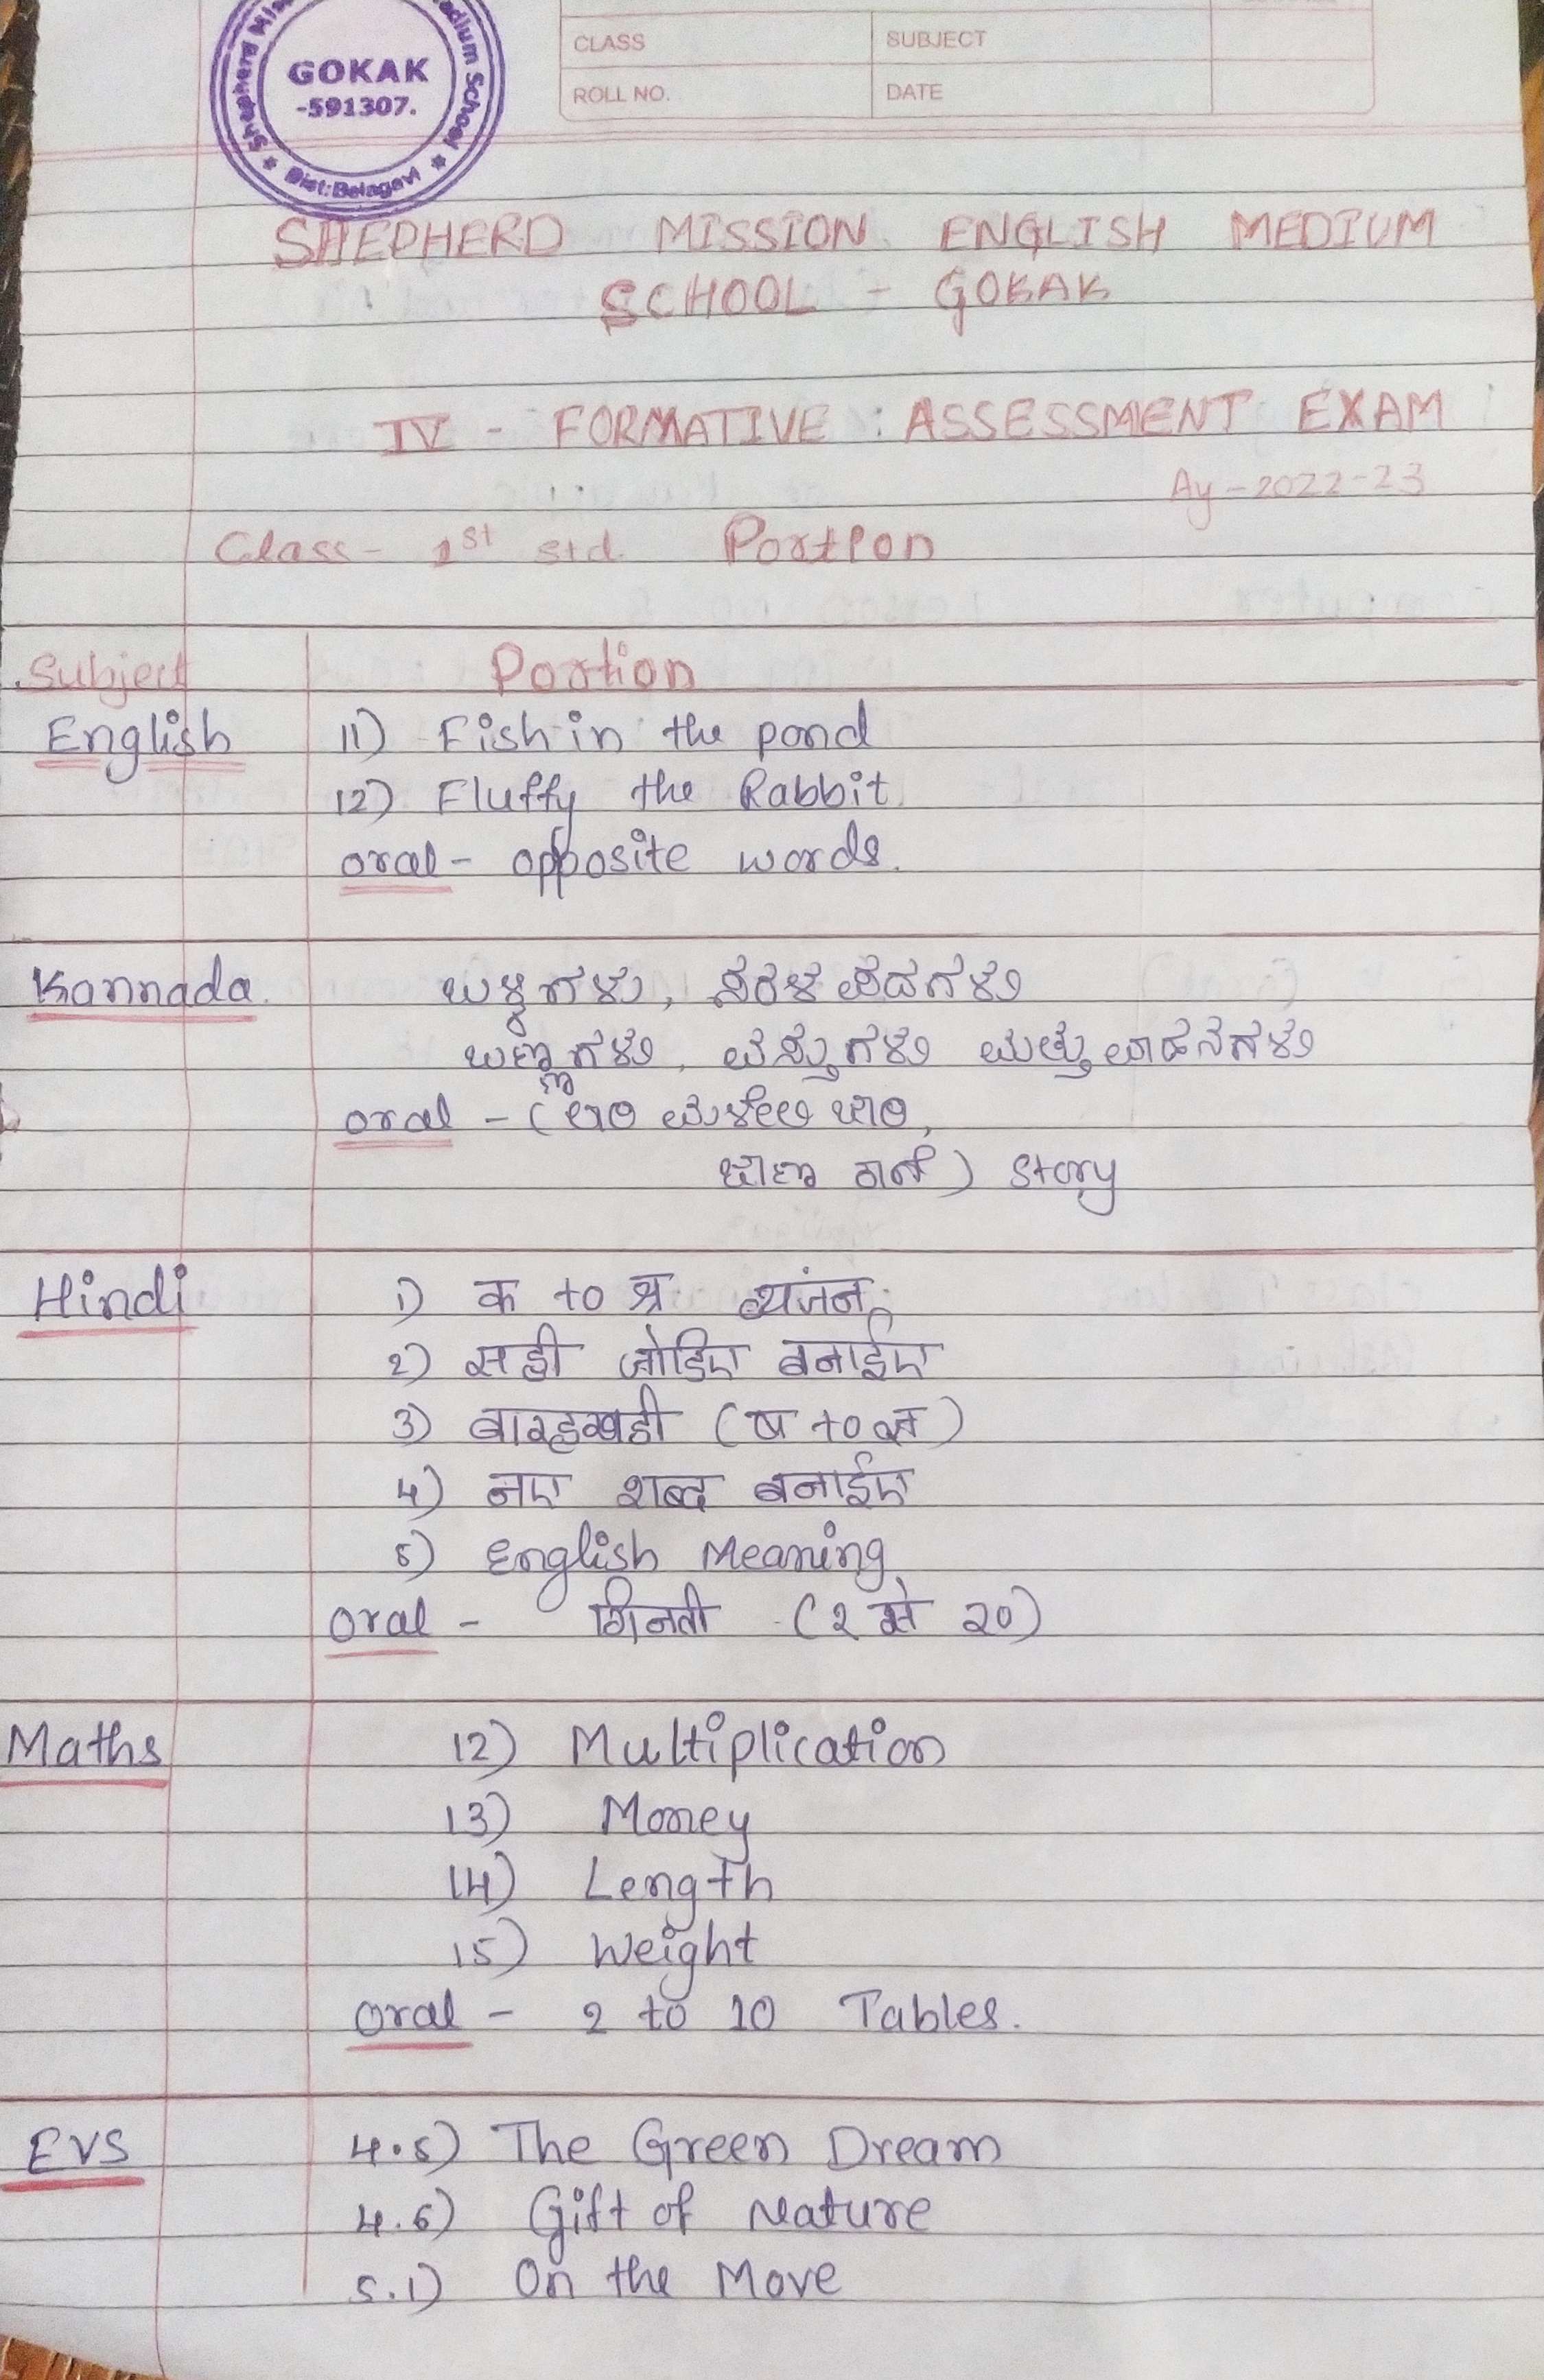 GOKAK
-591307.
Dist:Belagavi
CLASS SUBJECT
ROLL NO. DATE
SHEPHERD MISSION ENGLISH MEDIUM
SCHOOL - GOKAK
IV - FORMATIVE : ASSESSMENT EXAM
Ay-2022-23
Class- 1st std. Portion
Subject Portion
English 11) Fish in the pond
12) Fluffy the Rabbit
oral - opposite words.
Kannada ಬಳ್ಳಿಗಳು, ಸರಳ ಪದಗಳು
ಬಣ್ಣಗಳು, ವಸ್ತುಗಳು ಮತ್ತು ವಾಹನಗಳು
oral - (ಬಾರಿ ಮಳೇಲಿ ಜಾರಿ,
ಜಾಣ ಕಾಗೆ) Story
Hindi 1) क to श्र व्यंजन
2) सही जोडिए बनाईए
3) बारहखडी (ष to ज्ञ)
4) नए शब्द बनाईए
5) English Meaning
Oral - गिनती (१ से २०)
Maths 12) Multiplication
13) Money
14) Length
15) Weight
Oral - 2 to 10 Tables.
EVS 4.5) The Green Dream
4.6) Gift of Nature
5.1) On the Move